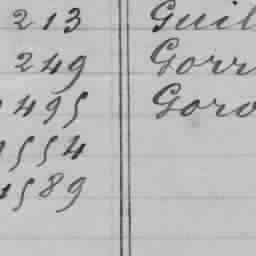 213 Guil
249 Gorr
1495 Goro
1554
1589